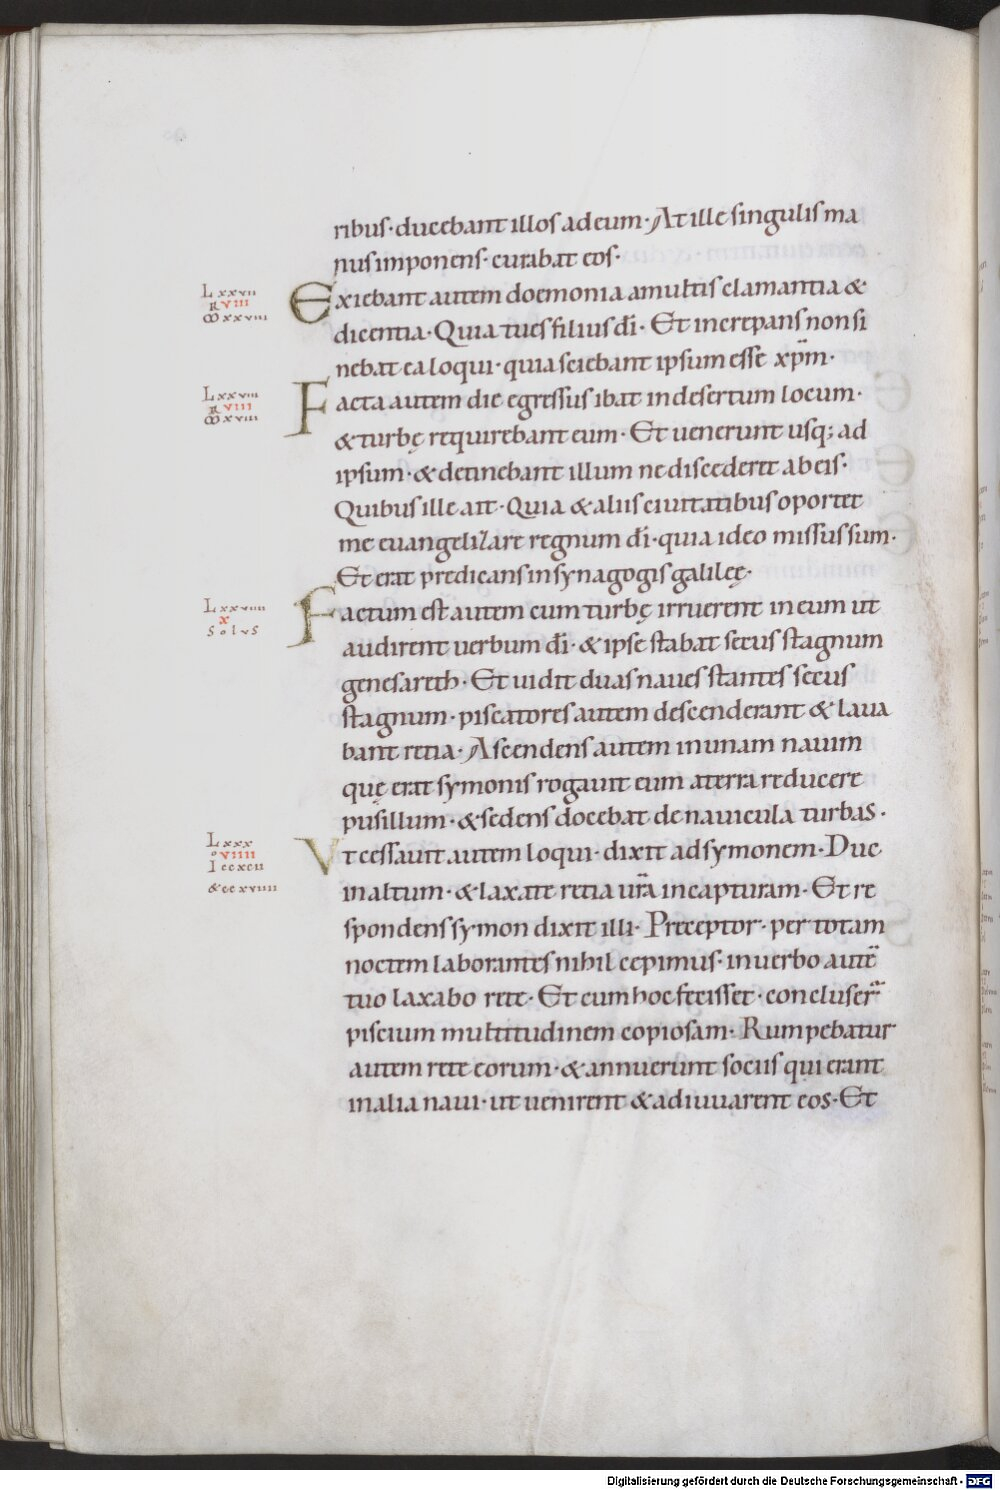 ribus· ducebant illos ad eum· At ille singulis ma
nus imponens· curabat eos·
Lxxvii
VIII
xxviii
Exiebant autem doemonia a multis clamantia &
dicentia· Quia tu es filius dī· Et increpans non si
nebat ea loqui· quia sciebant ipsum esse xp̄m·
Lxxviii
VIII
xviii
Facta autem die egressus ibat in desertum locum·
& turbę requirebant eum· Et uenerunt usq; ad
ipsum· & detinebant illum ne discederet ab eis·
Quibus ille ait· Quia & aliis ciuitatibus oportet
me euangelizare regnum dī· quia ideo missus sum·
Et erat predicans in synagogis galileę·
Lxxviiii
x
Solus
Factum est autem cum turbę irruerent in eum ut
audirent uerbum dī· & ipse stabat secus stagnum
genesareth· Et uidit duas naues stantes secus
stagnum· piscatores autem descenderant & laua
bant retia· Ascendens autem in unam nauim
quę erat symonis rogauit eum a terra reducere
pusillum· & sedens docebat de nauicula turbas·
Lxxx
VIIII
Vt cessauit autem loqui· dixit ad symonem· Duc
in altum· & laxate retia ur̄a in capturam· Et re
spondens symon dixit illi· Preceptor· per totam
noctem laborantes nihil cepimus· in uerbo autē
tuo laxabo rete· Et cum hoc fecisset· concluser̄
piscium multitudinem copiosam· Rumpebatur
autem rete eorum· & annuerunt sociis qui erant
in alia naui· ut uenirent & adiuuarent eos· Et
Digitalisierung gefördert durch die Deutsche Forschungsgemeinschaft - DFG